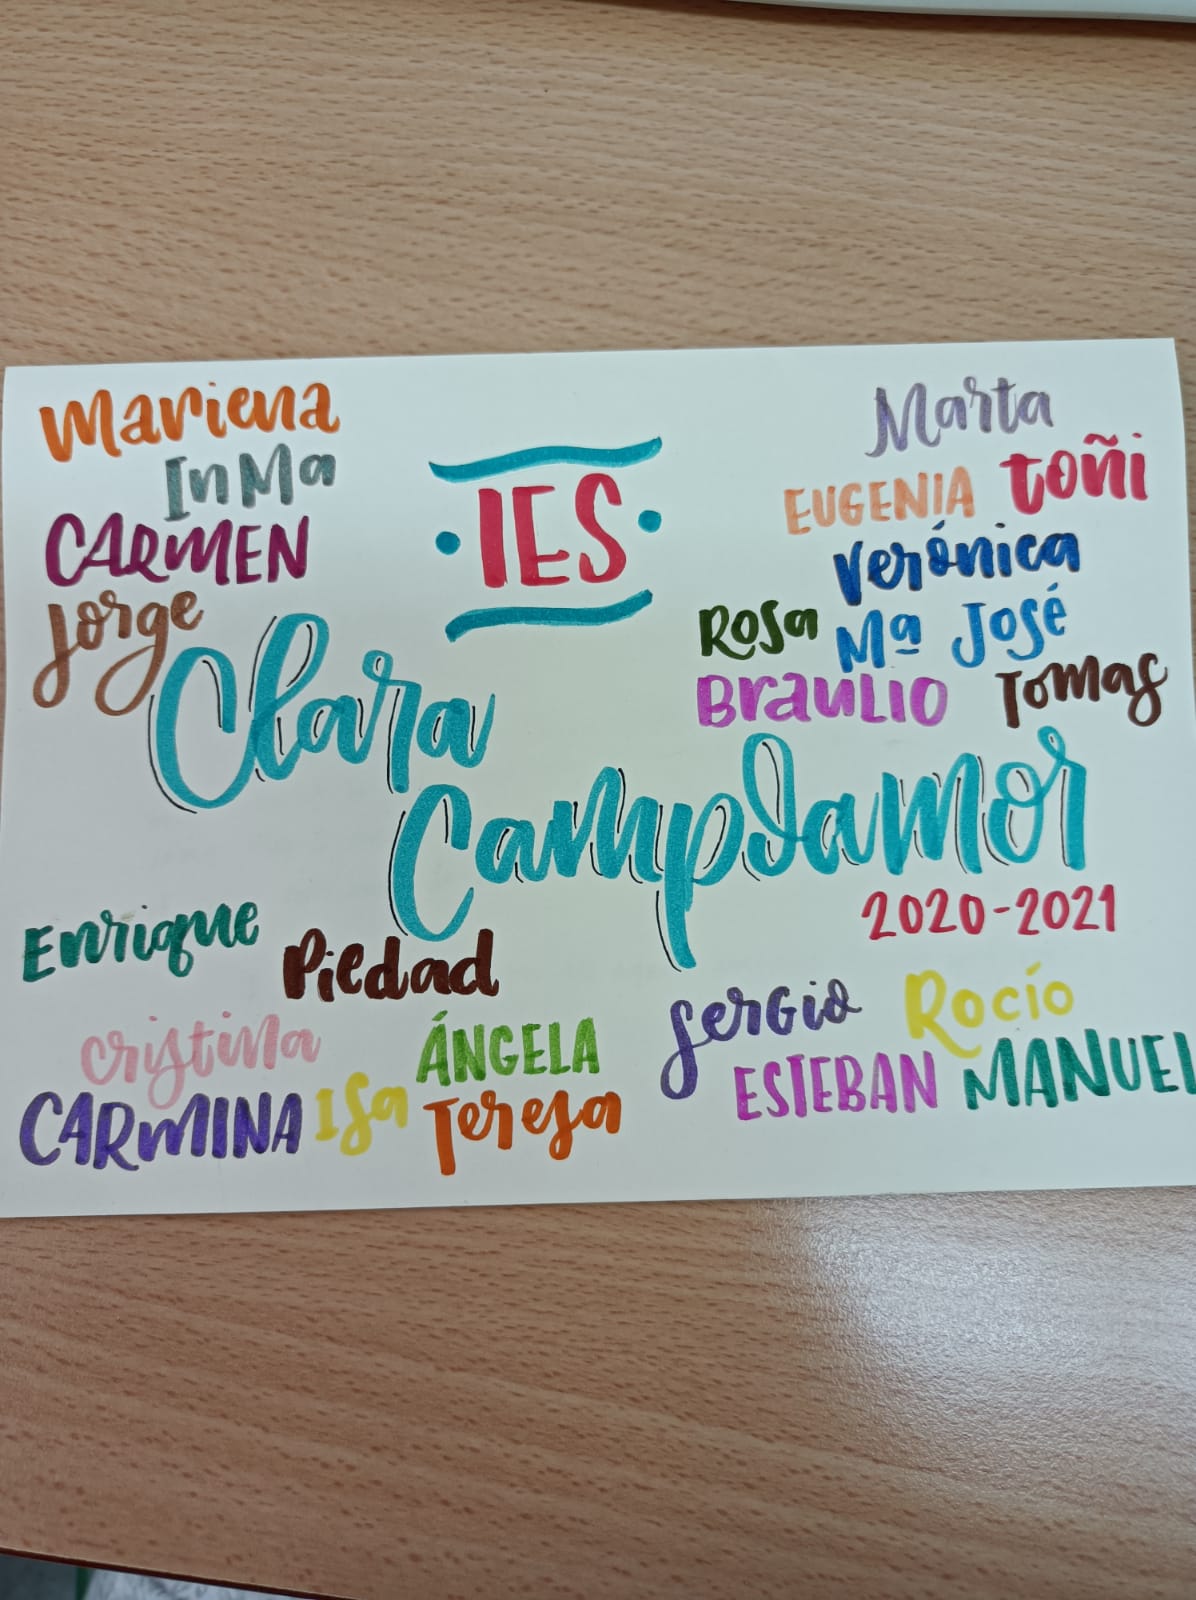 Mariena
InMa
CARMEN
Jorge
IES
Marta
EUGENIA Toñi
Verónica
Rosa Mª José
Braulio Tomas
Clara
Campoamor
2020-2021
Enrique
Piedad
Cristina ÁNGELA
CARMINA Isa Teresa
Sergio Rocío
ESTEBAN MANUEL